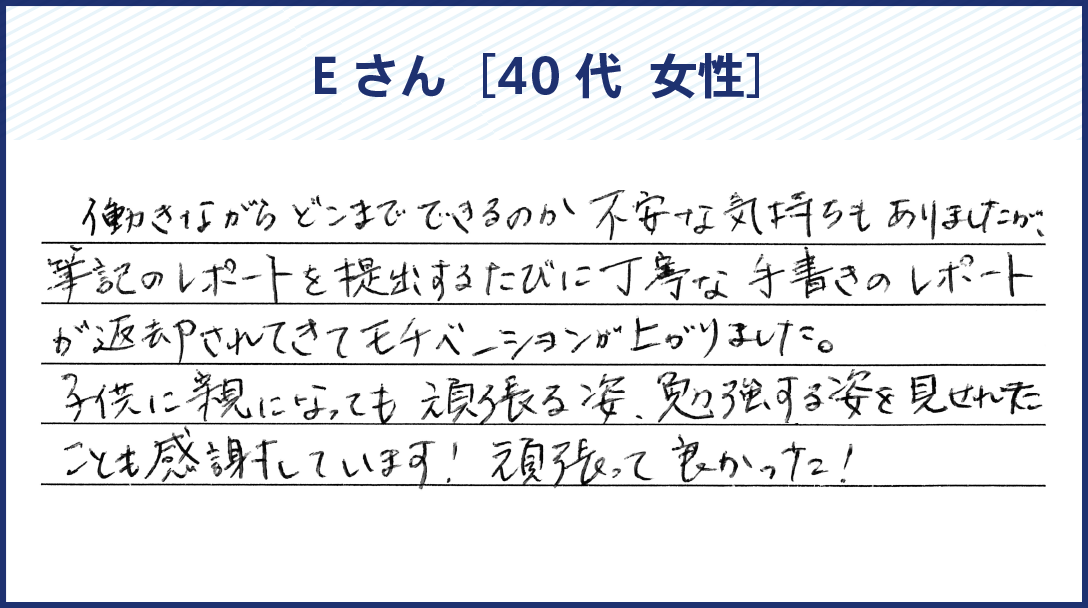 Eさん［40代 女性］
働きながらどこまでできるのか不安な気持ちもありましたが、
筆記のレポートを提出するたびに丁寧な手書きのレポート
が返却されてきてモチベーションが上がりました。
子供に親になっても頑張る姿、勉強する姿を見せれた
ことも感謝しています！頑張って良かった！